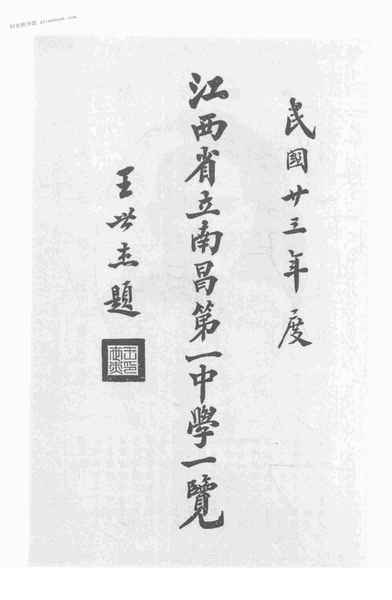 民國廿三年度
江西省立南昌第一中學一覽
王世杰題